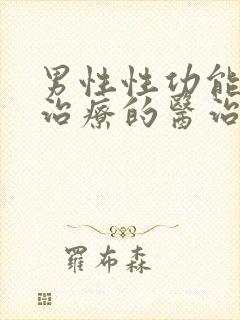 男性性功能
治療的醫治
羅布森